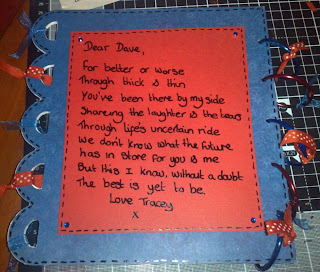 Dear Dave,
For better or worse
Through thick & thin
You've been there by my side
Shareing the laughter is the tears
Through life's uncertain ride
We don't know what the future
has in store for you & me
But this I know, without a doubt
The best is yet to be.
Love Tracey
x